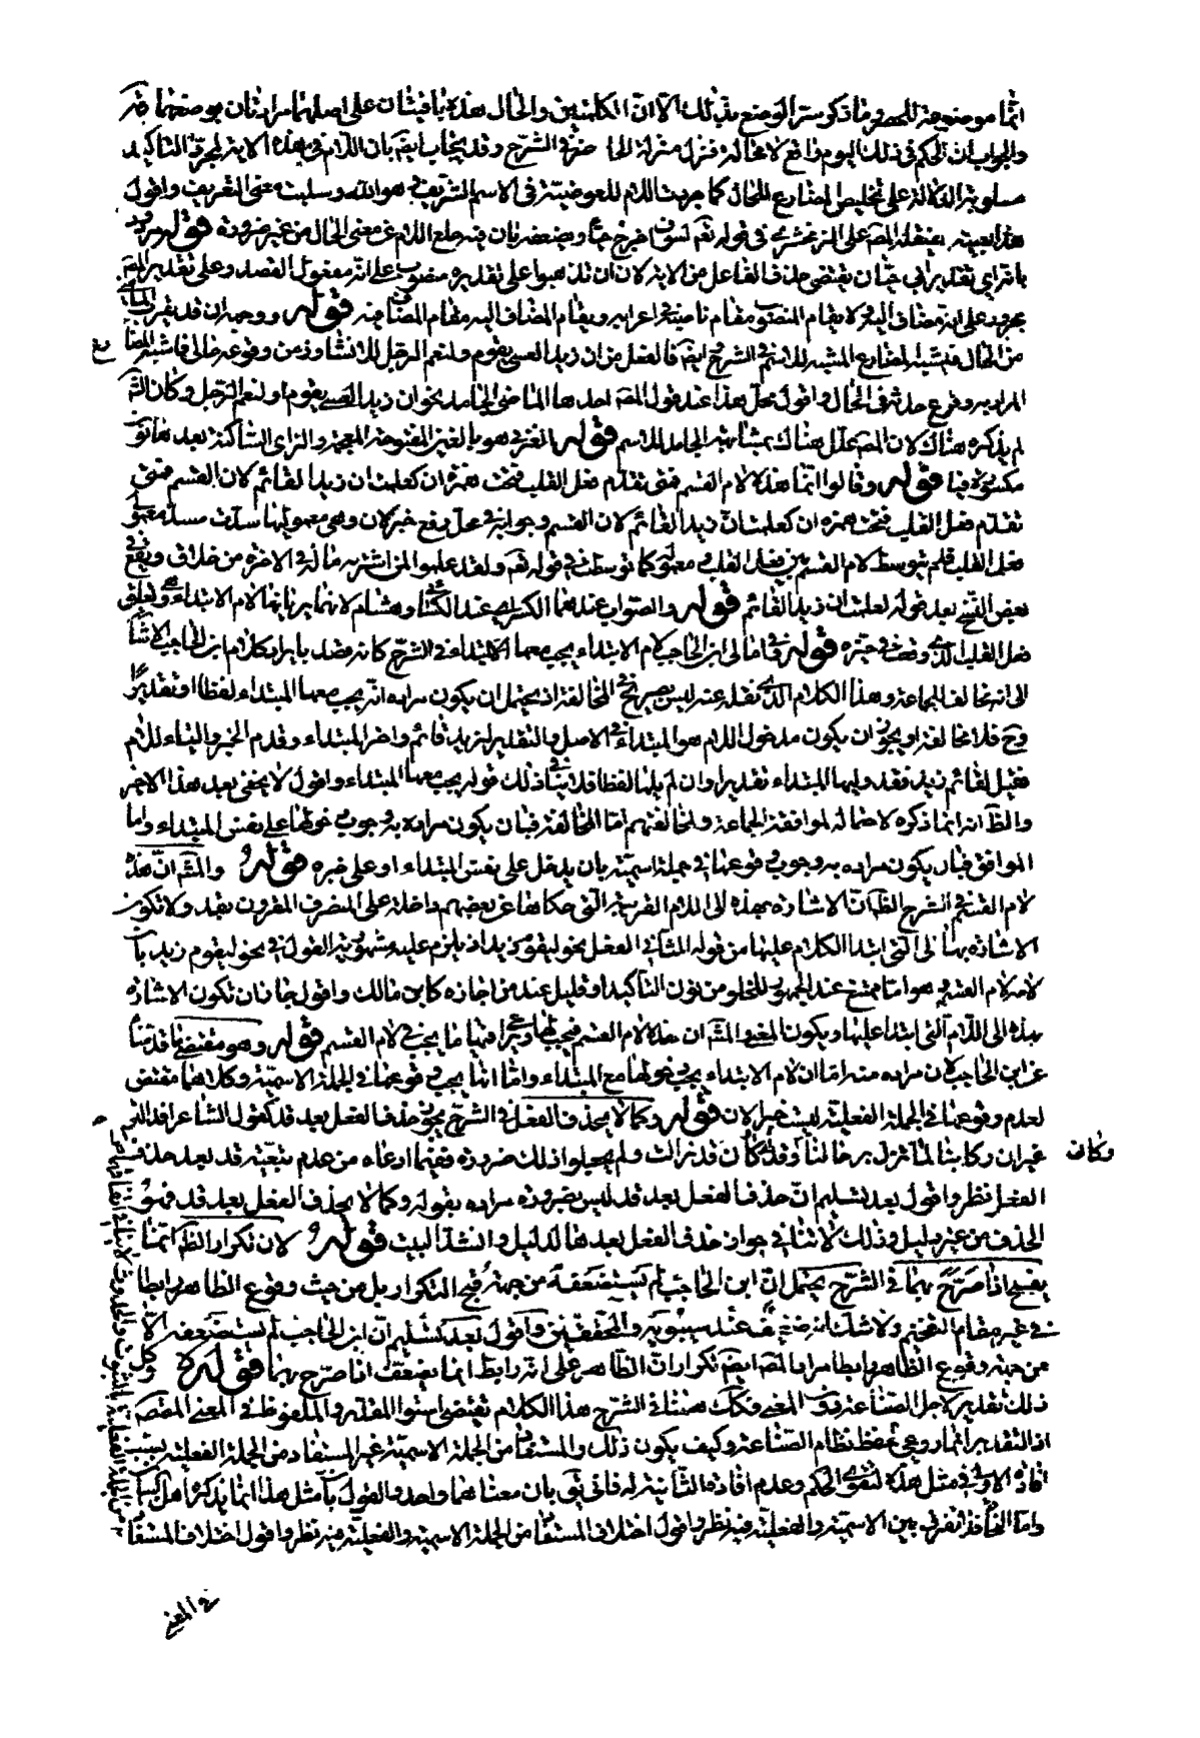 انما موضوعة للحصر وما ذكر سترالوضع بذلك الا ان الكلمتين والحال هذه باقيتان على اصلهما مرادتان بوضعهما
والجواب ان الحكم في ذلك اليوم واقع لا محالة فنزل منزلة الحا ضر في الشرح وقد يجاب ايضا بان اللام في هذه الاية لمجرد التاكيد
مسلوبة الدلالة على تخليص المضارع للحال كما جردت اللام للعوضية في الاسم الشريف هو الله وسلبت معنى التعريف واقول
هذا بعينه ينقله المص على الزمخشري في قوله تعم لسوف اخرج حيا ويضعفه بان فيه خلع اللام عن معنى الحال من غير ضرورة قوله
بانه اي تقدير ابي حيان يقتضي حذف الفاعل من الاية لان ان تذهبوا على تقديره منصوب على انه مفعول القصد وعلى تقدير المص
مجرور على انه مضاف اليه لا يقام المنصوب مقام ناصبه في اعرابه ويقام المضاف اليه مقام المضاف منه قوله ووجهه ان قد يقرب
من الحال فيشبه المضارع المشبه للاسم في الشرح ايضا فالفعل من ان زيدا لعسى يقوم ولنعم الرجل للانشاء وزمن وقوعه حالي فاشبه المضا
المراد به وقوع حدثه في الحال واقول محل هذا عند قول المص احدها الماضي الجامد نحو ان زيدا لعسى يقوم او لنعم الرجل وكان الش
لم يذكره هناك لان المص علل هناك بمشابهة الجامد للاسم قوله الغزي هو بالغين المفتوحة المعجمة والزاي الساكنة بعدها نون
مكسورة فيا قوله وقالوا انما هذه لام القسم فمتى تقدم فعل القلب فتحت همزة ان كعلمت ان زيدا لقائم لان القسم متى
تقدم فعل القلب فتحت همزة ان كعلمت ان زيدا لقائم لان القسم وجوابه في محل رفع خبر لان وهي معموليها سادت مسد معمولي
فعل القلب فلم يتوسط لام القسم بين فعل القلب ومعموله كما توسطت في قوله تعم ولقد علموا لمن اشتريه ما له في الاخرة من خلاق
بعض النسخ بعد قوله لعلمت ان زيدا لقائم قوله والصواب عندهما الكسر اي عند الكسائي وهشام لانهما يريانها لام الابتداء
فعل القلب الذي دخلت في حيزه قوله في امالي ابن الحاجب لام الابتداء يجب معها الابتداء في الشرح كانه قصد بايراد كلام ابن الحاجب الاشا
الى انه مخالف للجماعة وهذا الكلام الذي نقله عنه ليس بصريح في المخالفة اذ يحتمل ان يكون مراده انه يجب معها المبتداء لفظا او تقديرا
وح فلا مخالفة او يجوز ان يكون مدخول اللام هو المبتداء في الاصل والتقدير لزيد قائم واخر المبتداء وقدم الخبر والتاء للام
فقيل لقائم زيد فقد وليها المبتداء تقديرا وان لم يلها لفظا فلا ينافي ذلك قوله يجب معها المبتداء واقول لا يخفى بعد هذا الاخير
والظ انه انما ذكره لاحتماله لموافقة الجماعة ولمخالفتهم اما المخالفة فبان يكون مراده به وجوب دخولها على نفس المبتداء واما
الموافق فبان يكون مراده به وجوب وقوعها في جملة اسمية بان يدخل على نفس المبتداء او على خبره قوله والمش ان هذه
لام القسم في الشرح الظ ان الاشارة بهذه الى اللام القريبة التي حكاها عن بعضهم داخلة على المتصرف المقرون بقد ولا تكون
الاشارة بها الى التي ابتدا الكلام عليها من قوله الثاني الفعل نحو ليقوم زيد اذ يلزم عليه مشهورية القول في نحو ليقوم زيد بان
لامه لام القسم وهو اما ممتنع عند الجمهور للخلو من نون التاكيد او قليل عند من اجازه كابن مالك واقول جاز ان تكون الاشارة
بهذه الى اللام التي ابتدا عليها ويكون المعنى والمش ان هذه لام القسم فيجب لها وجراء فيها ما يجب في لام القسم قوله وهو مقتضى ما قدمنا
عن ابن الحاجب لان مراده منه اما ان لام الابتداء يجب دخولها مع المبتداء واما انها يجب وقوعها في الجملة الاسمية وكلاهما مقتض
لعدم وقوعها في الجملة الفعلية ليست خبرا لان قوله وكما لا يحذف الفعل في الشرح يجوز حذف الفعل بعد قد كقول الشاعر افد الترحل
غير ان ركابنا لما تزل برحالنا وكان قد اي وكان قد زالت ولم يجعلوا ذلك ضرورة ففيما ادعاه من عدم تبعية قد بعد حذف
الفعل نظر واقول بعد تسليم ان حذف الفعل بعد قد ليس بضرورة مراده بقوله وكما لا يحذف الفعل بعد قد فهو
الحذف من غير دليل وذلك لا ينافي جواز حذف الفعل بعدها لدليل وانشد البيت قوله لان تكرار الظ انما
يقبح اذا صرح بهما في الشرح يحتمل ان ابن الحاجب لم يستضعفه من جهة قبح التكرار بل من حيث وقوع الظاهر رابطا
في غير مقام التفخيم ولا شك انه ضعيف عند سيبويه والمحققين واقول بعد تسليم ان ابن الحاجب لم يستضعفه الا
من جهة وقوع الظاهر رابطا مراد المص ايضا تكرار ان الظاهر على انه رابط انما يضعف اذا صرح بهما قوله وكل
ذلك تقدير لاجل الصناعة دون المعنى فكك هنا في الشرح هذا الكلام يقتضي استواء المقدر والملفوظ في المعنى المقصود
اذ التقدير انما روعي لحفظ نظام الصناعة وكيف يكون ذلك والمستفاد من الجملة الاسمية غير المستفاد من الجملة الفعلية بسبب
افادة الاولى في مثل هذه لتقوي الحكم وعدم افادة الثانية له فاني يق بان معناهما واحد والقول بان مثل هذا انما يذكره اهل
واما النحاة فلا تفرق بين الاسمية والفعلية فيه نظر واقول اختلاف المستفاد من الجملة الاسمية والفعلية فيه نظر واقول اختلاف المستفاد
وكان
في المعنى